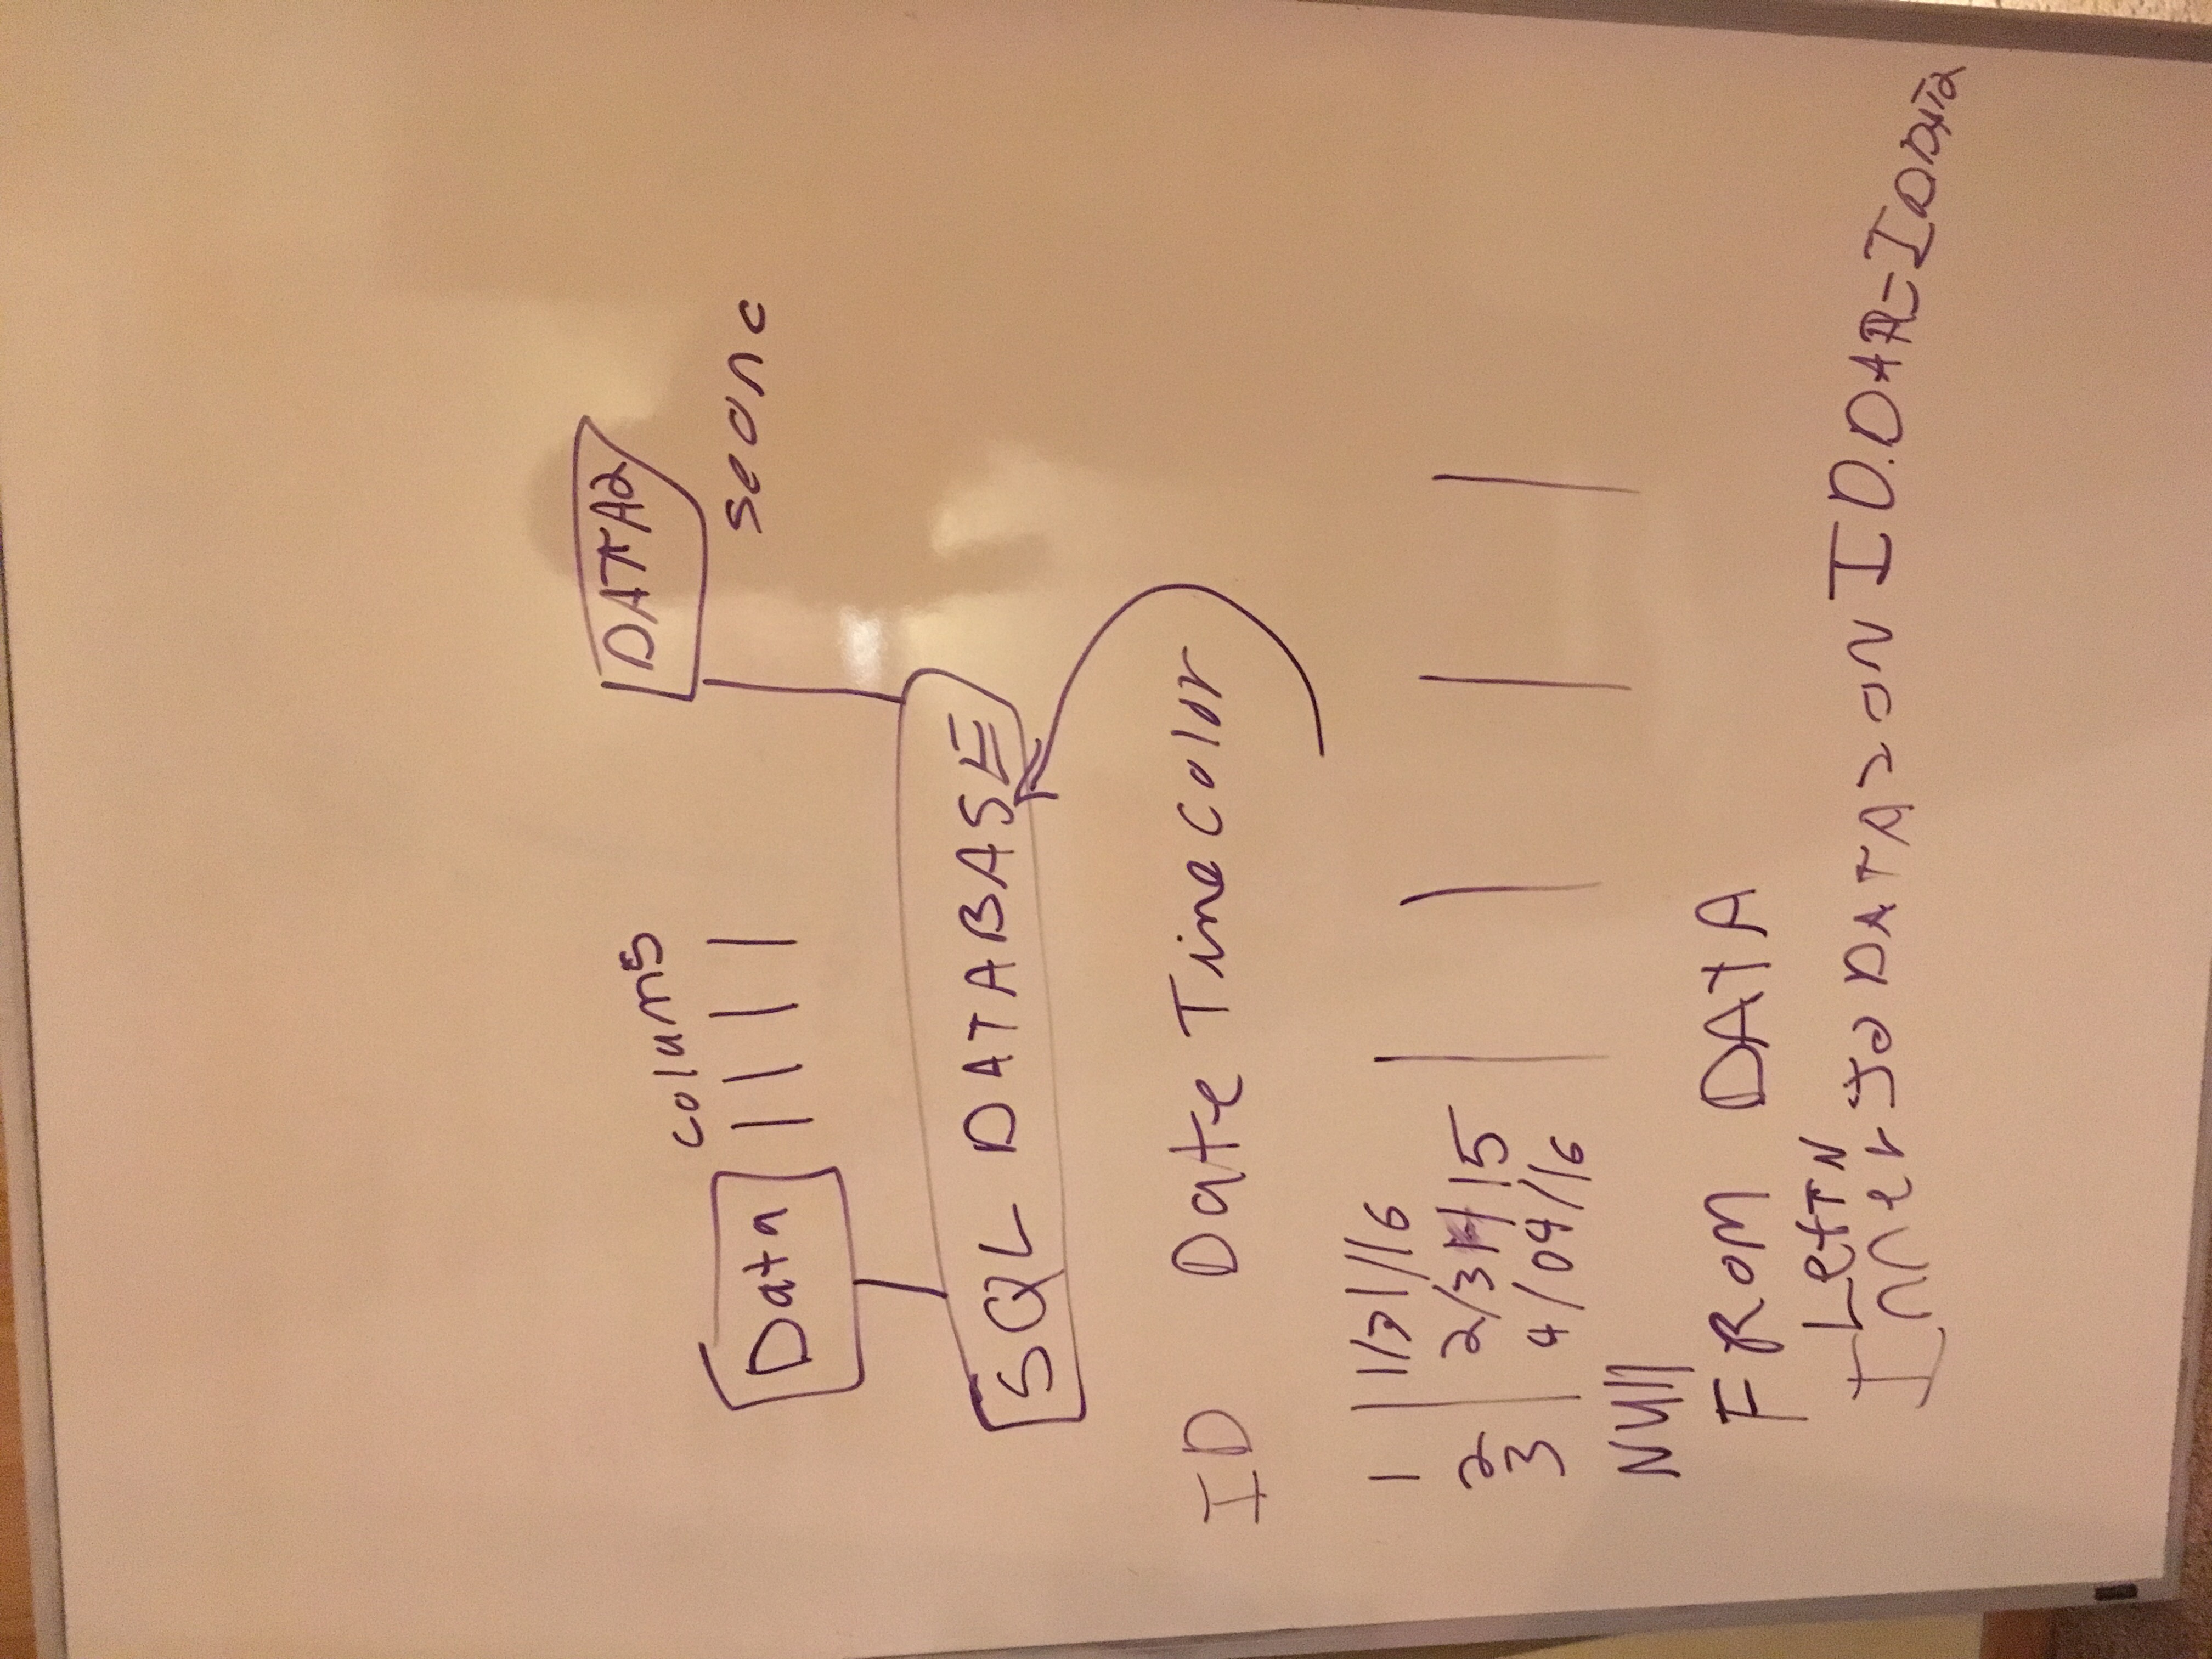 DATA2
colums
Data
seonc
SQL DATABASE
ID Date Time color
1 1/31/16
2 2/3 15
3 4/04/16
NUll
FROM DATA
Left
Inner Jo DATA2 ON ID.DATA=ID DAT2